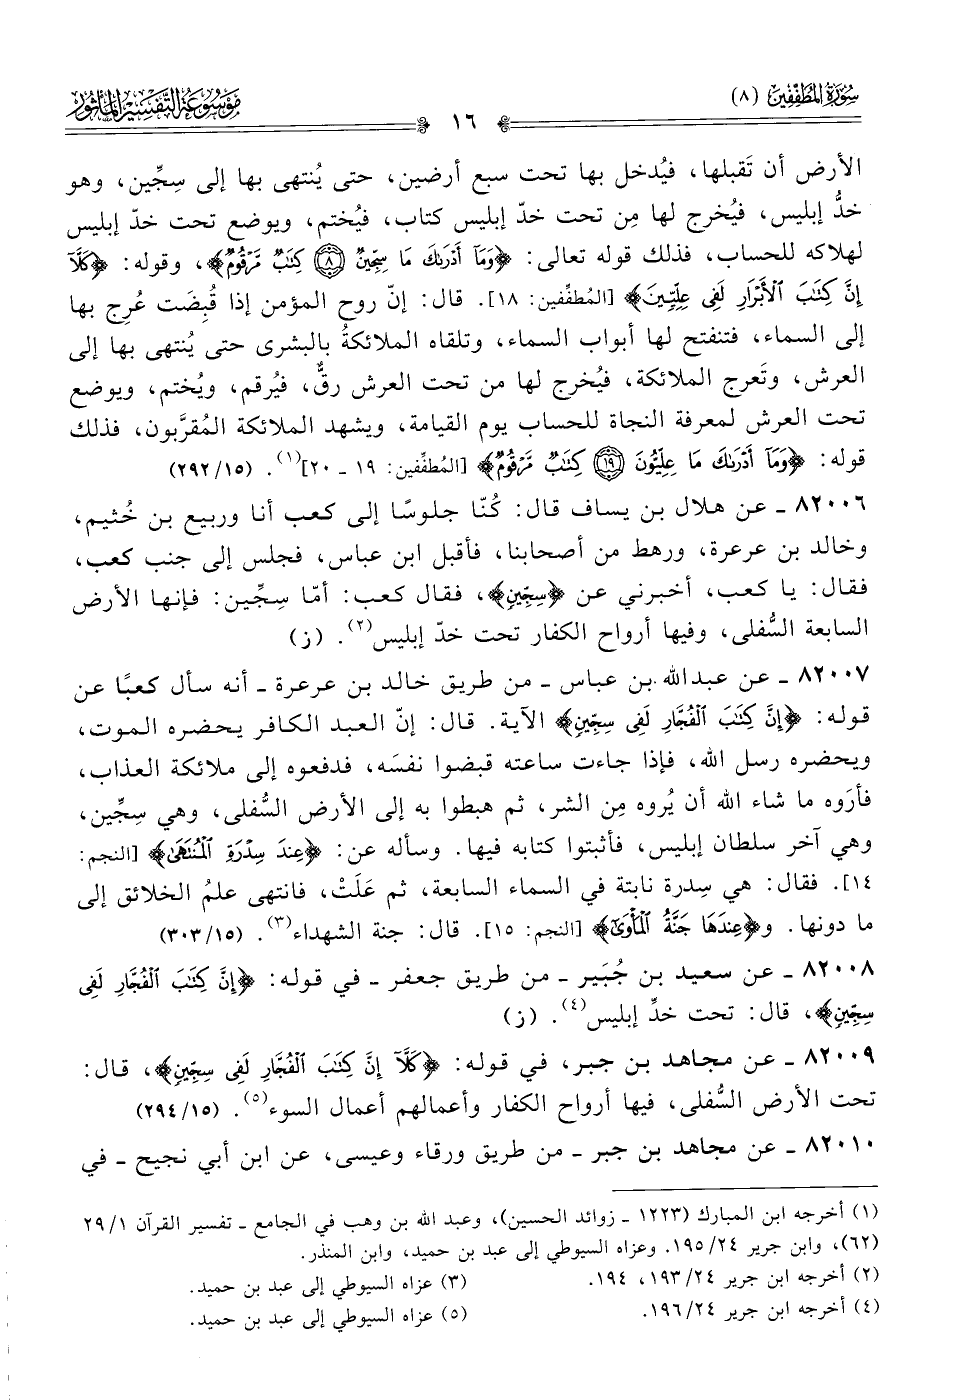 سُورَةُ المُطَفِّفِين (٨)
١٦
مَوْسُوعَةُ التَّفْسِيرِ المَأْثُور
الأرض أن تَقبلها، فيُدخل بها تحت سبع أرضين، حتى يُنتهى بها إلى سِجِّين، وهو
خدُّ إبليس، فيُخرج لها مِن تحت خدّ إبليس كتاب، فيُختم، ويوضع تحت خدّ إبليس
لهلاكه للحساب، فذلك قوله تعالى: ﴿وَمَآ أَدْرَىٰكَ مَا سِجِّينٌ ۝٨ كِتَٰبٌ مَّرْقُومٌ﴾، وقوله: ﴿كَلَّآ
إِنَّ كِتَٰبَ ٱلْأَبْرَارِ لَفِى عِلِّيِّينَ﴾ [المُطفِّفين: ١٨]. قال: إنّ روح المؤمن إذا قُبِضَت عُرِج بها
إلى السماء، فتنفتح لها أبواب السماء، وتلقاه الملائكةُ بالبشرى حتى يُنتهى بها إلى
العرش، وتَعرج الملائكة، فيُخرج لها من تحت العرش رقٌّ، فيُرقم، ويُختم، ويوضع
تحت العرش لمعرفة النجاة للحساب يوم القيامة، ويشهد الملائكة المُقرَّبون، فذلك
قوله: ﴿وَمَآ أَدْرَىٰكَ مَا عِلِّيُّونَ ۝١٩ كِتَٰبٌ مَّرْقُومٌ﴾ [المُطفِّفين: ١٩ ـ ٢٠](١). (٢٩٢/١٥)
٨٢٠٠٦ ـ عن هلال بن يساف قال: كُنّا جلوسًا إلى كعب أنا وربيع بن خُثيم،
وخالد بن عرعرة، ورهط من أصحابنا، فأقبل ابن عباس، فجلس إلى جنب كعب،
فقال: يا كعب، أخبرني عن ﴿سِجِّينٍ﴾، فقال كعب: أمّا سِجِّين: فإنها الأرض
السابعة السُّفلى، وفيها أرواح الكفار تحت خدّ إبليس(٢). (ز)
٨٢٠٠٧ ـ عن عبدالله بن عباس ـ من طريق خالد بن عرعرة ـ أنه سأل كعبًا عن
قوله: ﴿إِنَّ كِتَٰبَ ٱلْفُجَّارِ لَفِى سِجِّينٍ﴾ الآية. قال: إنّ العبد الكافر يحضره الموت،
ويحضره رسل الله، فإذا جاءت ساعته قبضوا نفسَه، فدفعوه إلى ملائكة العذاب،
فأرَوه ما شاء الله أن يُروه مِن الشر، ثم هبطوا به إلى الأرض السُّفلى، وهي سِجِّين،
وهي آخر سلطان إبليس، فأثبتوا كتابه فيها. وسأله عن: ﴿عِندَ سِدْرَةِ ٱلْمُنتَهَىٰ﴾ [النجم:
١٤]. فقال: هي سِدرة نابتة في السماء السابعة، ثم عَلَتْ، فانتهى علمُ الخلائق إلى
ما دونها. و﴿عِندَهَا جَنَّةُ ٱلْمَأْوَىٰٓ﴾ [النجم: ١٥]. قال: جنة الشهداء(٣). (٣٠٣/١٥)
٨٢٠٠٨ ـ عن سعيد بن جُبَير ـ من طريق جعفر ـ في قوله: ﴿إِنَّ كِتَٰبَ ٱلْفُجَّارِ لَفِى
سِجِّينٍ﴾، قال: تحت خدِّ إبليس(٤). (ز)
٨٢٠٠٩ ـ عن مجاهد بن جبر، في قوله: ﴿كَلَّآ إِنَّ كِتَٰبَ ٱلْفُجَّارِ لَفِى سِجِّينٍ﴾، قال:
تحت الأرض السُّفلى، فيها أرواح الكفار وأعمالهم أعمال السوء(٥). (٢٩٤/١٥)
٨٢٠١٠ ـ عن مجاهد بن جبر ـ من طريق ورقاء وعيسى، عن ابن أبي نجيح ـ في
(١) أخرجه ابن المبارك (١٢٢٣ ـ زوائد الحسين)، وعبد الله بن وهب في الجامع ـ تفسير القرآن ٢٩/١
(٦٢)، وابن جرير ١٩٥/٢٤. وعزاه السيوطي إلى عبد بن حميد، وابن المنذر.
(٢) أخرجه ابن جرير ١٩٣/٢٤، ١٩٤.
(٣) عزاه السيوطي إلى عبد بن حميد.
(٤) أخرجه ابن جرير ١٩٦/٢٤.
(٥) عزاه السيوطي إلى عبد بن حميد.